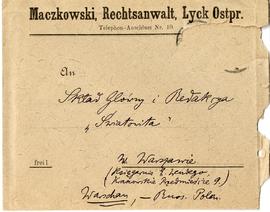 Maczkowski, Rechtsanwalt, Lyck Ostpr.
Telephon-Anschluss Nr. 10.
An
Skład Główny i Redakcya
„Światowita”
w Warszawie
frei!
(Księgarnia E. Wendego
Krakowskie Przedmieście 9.)
Warschau, — Russ. Polen.